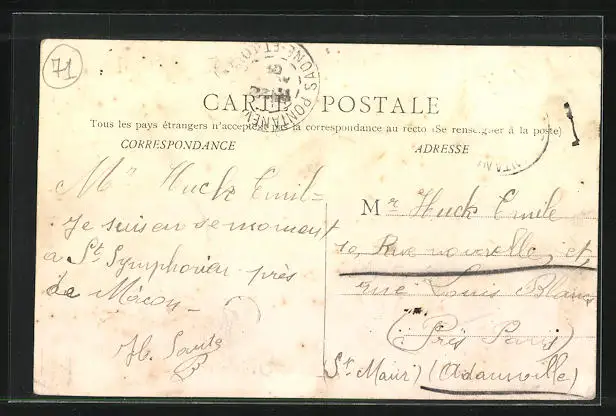 71
SAONE-ET-LOIRE
PONTANEV
CARTE POSTALE
Tous les pays étrangers n'acceptent pas la correspondance au recto (Se renseigner à la poste)
CORRESPONDANCE
ADRESSE
Mr Huck Emile
Je suis en se moment
a St Symphorien près
de Mâcon
Mr Huck Emile
Rue nouvelle, et,
rue Louis Blanc
(Près Paris)
St Maur) (Adamville)